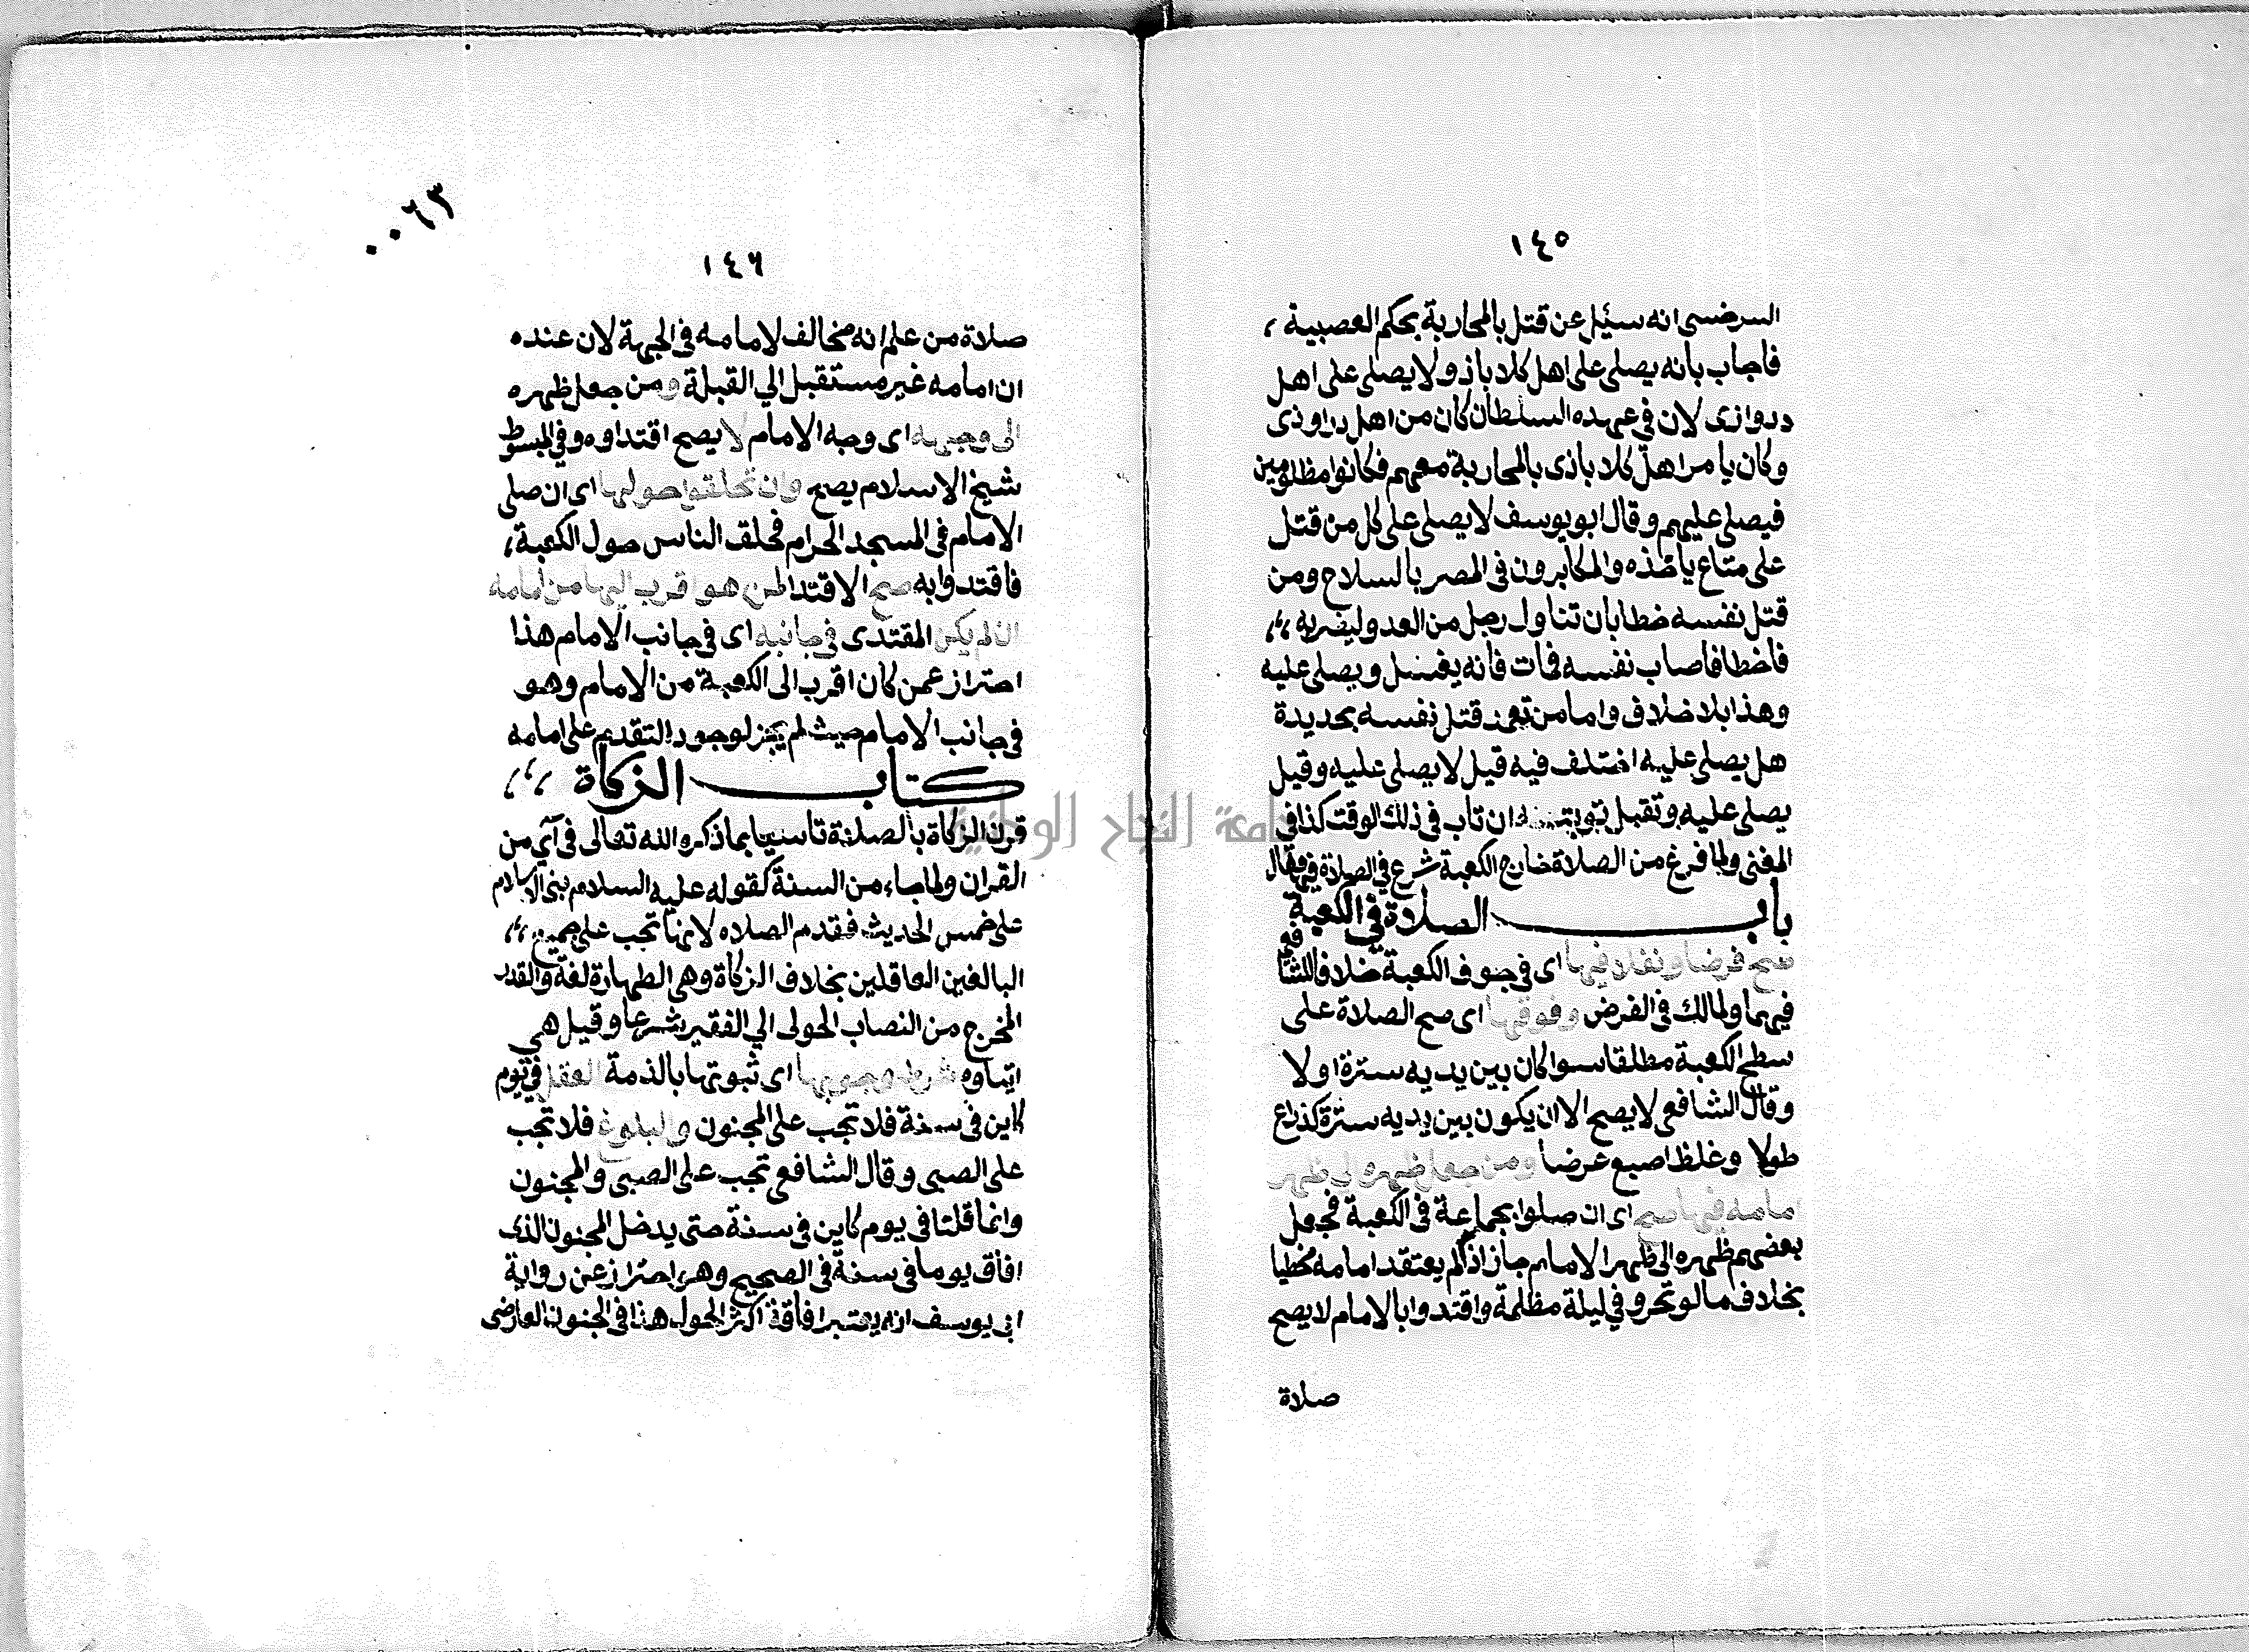 ١٤٥
السرخسى انه سئيل عن قتل بالمحاربة بحكم العصبية ،
فاجاب بانه يصلى على اهل كلاباذ ولا يصلى على اهل
دروازى لان فى عهده السلطان كان من اهل دراوذى
وكان يامر اهل كلاباذى بالمحاربة معهم فكانوا مظلومين
فيصلى عليهم وقال ابو يوسف لا يصلى على كل من قتل
على متاع ياخذه والمكابرون فى المصر بالسلاح ومن
قتل نفسه خطا بان تناول رجل من العدو ليضربه ،،
فاخطا فاصاب نفسه فمات فانه يغسل ويصلى عليه
وهذا بلا خلاف واما من تعمد قتل نفسه بحديدة
هل يصلى عليه اختلف فيه قيل لا يصلى عليه وقيل
يصلى عليه وتقبل توبته ان تاب فى ذلك الوقت كذا فى
المغنى ولما فرغ من الصلاة خارج الكعبة شرع فى الصلاة فيها وقال
باب الصلاة في الكعبة
صح فرضا ونفلا فيها اى فى جوف الكعبة خلافا للشافعى
فيهما ولمالك فى الفرض وفوقها اى صح الصلاة على
سطح الكعبة مطلقا سوا كان بين يديه سترة او لا
وقال الشافعى لا يصح الا ان يكون بين يديه سترة كذراع
طولا وغلظ اصبع عرضا ومن جعل ظهره الى ظهر
امامه فيها صح اى ان صلوا بجماعة فى الكعبة فجعل
بعضهم ظهره الى ظهر الامام جاز اذا لم يعتقد امامه مخطيا
بخلاف ما لو تحرو فى ليلة مظلمة واقتدوا بالامام لا يصح
صلاة
٠٠٦٣
١٤٦
صلاة من علم انه مخالف لامامه فى الجهة لان عنده
ان امامه غير مستقبل الي القبلة ومن جعل ظهره
الى وجهه اى وجه الامام لا يصح اقتداوه وفى المبسوط
شيخ الاسلام يصح وان تحلقوا حولها اى ان صلى
الامام فى المسجد الحرام فحلق الناس حول الكعبة ،
فاقتدوا به صح الاقتدا لمن هو اقرب اليها من امامه
ان لم يكن المقتدى فى جانبه اى فى جانب الامام هذا
احتراز عمن كان اقرب الى الكعبة من الامام وهو
فى جانب الامام حيث لم يجز لوجود التقدم على امامه
كتاب الزكاة ،،،
قرن الزكاة بالصلاة تاسيا بما ذكره الله تعالى فى آي من
القران ولما جاء من السنة كقوله عليه السلام بنى الاسلام
على خمس الحديث فقدم الصلاه لانها تجب على جميع ،،
البالغين العاقلين بخلاف الزكاة وهى الطهارة لغة والقدر
المخرج من النصاب الحولى الي الفقير شرعا وقيل هى
ايتاوه شرط وجوبها اى ثبوتها بالذمة العقل فى يوم
كاين فى سنة فلا تجب على المجنون والبلوغ فلا تجب
على الصبى وقال الشافعى تجب على الصبى والمجنون
وانما قلنا فى يوم كاين فى سنة حتى يدخل المجنون الذى
افاق يوما فى سنة فى الصحيح وهو احتراز عن رواية
ابى يوسف انه يعتبر افاقة اكثر الحول هذا فى الجنون العارضى
جامعة النجاح الوطنية